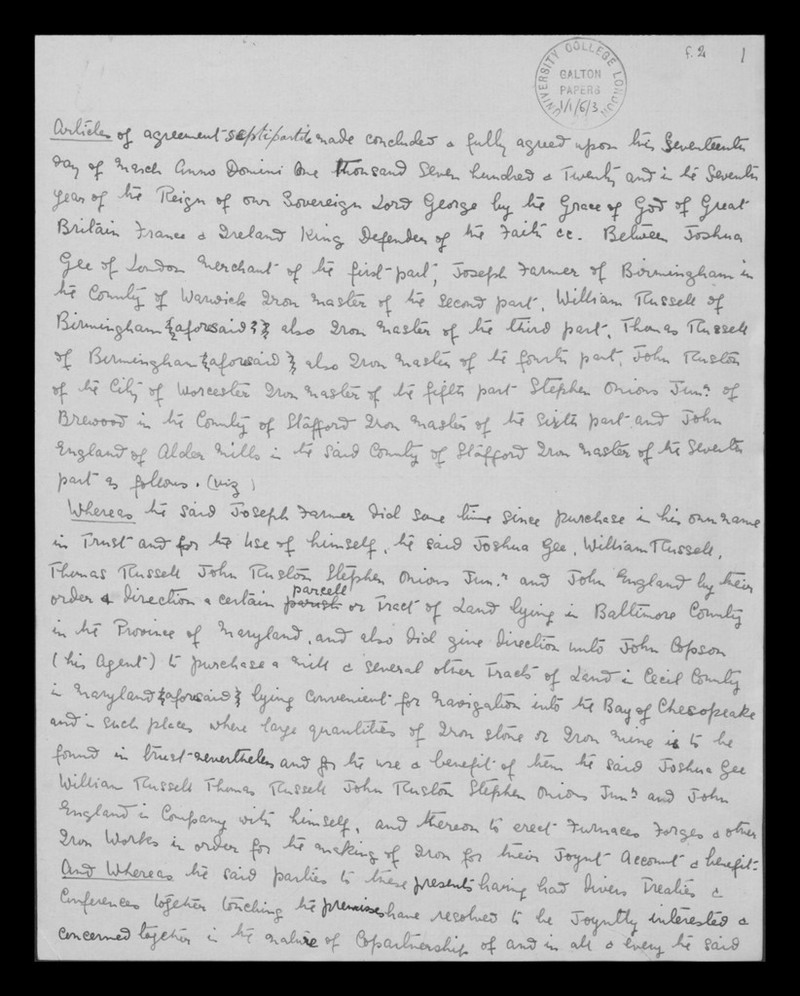 f. 2 1
UNIVERSITY COLLEGE LONDON
GALTON
PAPERS
1/1/6/3
Articles of agreement septipartite made concluded & fully agreed upon this Seventeenth
day of March Anno Domini One thousand Seven hundred & Twenty and in the Seventh
year of the Reign of our Sovereign Lord George by the Grace of God of Great
Britain France & Ireland King Defender of the Faith &c. Between Joshua
Gee of London Merchant of the first part, Joseph Farmer of Birmingham in
the County of Warwick Iron Master of the Second part, William Russell of
Birmingham {aforesaid} also Iron Master of the third part, Thomas Russell
of Birmingham {aforesaid} also Iron Master of the fourth part, John Ruston
of the City of Worcester Iron Master of the fifth part Stephen Onions Junr. of
Brewood in the County of Stafford Iron Master of the Sixth part and John
England of Alder Mills in the said County of Stafford Iron Master of the Seventh
part as follows. (viz)
Whereas the said Joseph Farmer did some time since purchase in his own name
in Trust and for the Use of himself, the said Joshua Gee, William Russell,
Thomas Russell John Ruston Stephen Onions Jun.r and John England by their
order & direction a certain parish parcell or Tract of Land lying in Baltimore County
in the Province of Maryland, and also did give direction unto John Copson
(his Agent) to purchase a Mill & several other Tracts of Land in Cecil County
in Maryland {aforesaid} lying convenient for Navigation into the Bay of Chesopeake
and in such places where large quantities of Iron Stone or Iron Mine is to be
found in trust nevertheless and for the use & benefit of them the said Joshua Gee
William Russell Thomas Russell John Ruston Stephen Onions Junr and John
England in Company with himself, and thereon to erect Furnaces Forges & other
Iron Works in order for the making of Iron for their Joynt Account & benefit.
And Whereas the said parties to these presents having had divers Treaties &
Conferences together touching the premises have resolved to be Joyntly interested &
concerned together in the nature of Copartnership of and in all & every the said